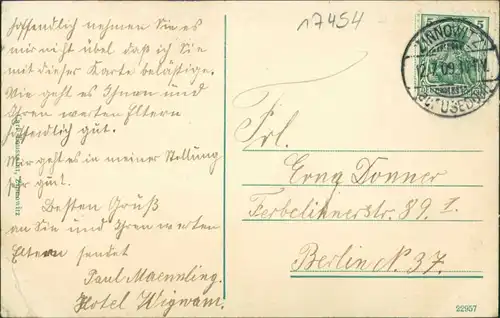 Hoffendlich nehmen Sie es
mir nicht übel daß ich Sie
mit dieser Karte belästige.
Wie geht es Ihnen und
Ihren werten Eltern
hoffendlich gut.
Mir geht es in meiner Stellung
sehr gut.
Besten Gruß
an Sie und Ihren werten
Eltern sendet
Paul Maennling.
Hotel Wigwam.
17454
5 5
ZINNOWITZ
(BZ. USEDOM)
Frl.
Erna Donner
Ferbelinnerstr. 89 I.
Berlin N. 37.
Zinnowitz
22957